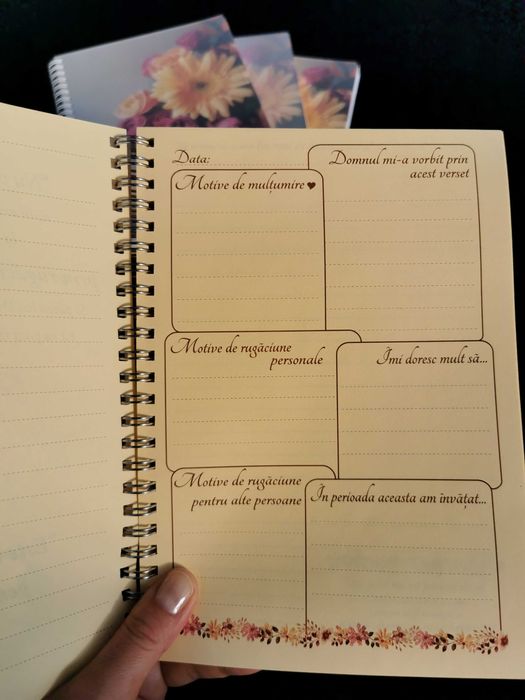 Data:
Domnul mi-a vorbit prin
acest verset
Motive de mulțumire ♥
Motive de rugăciune
personale
Îmi doresc mult să...
Motive de rugăciune
pentru alte persoane
În perioada aceasta am învățat...